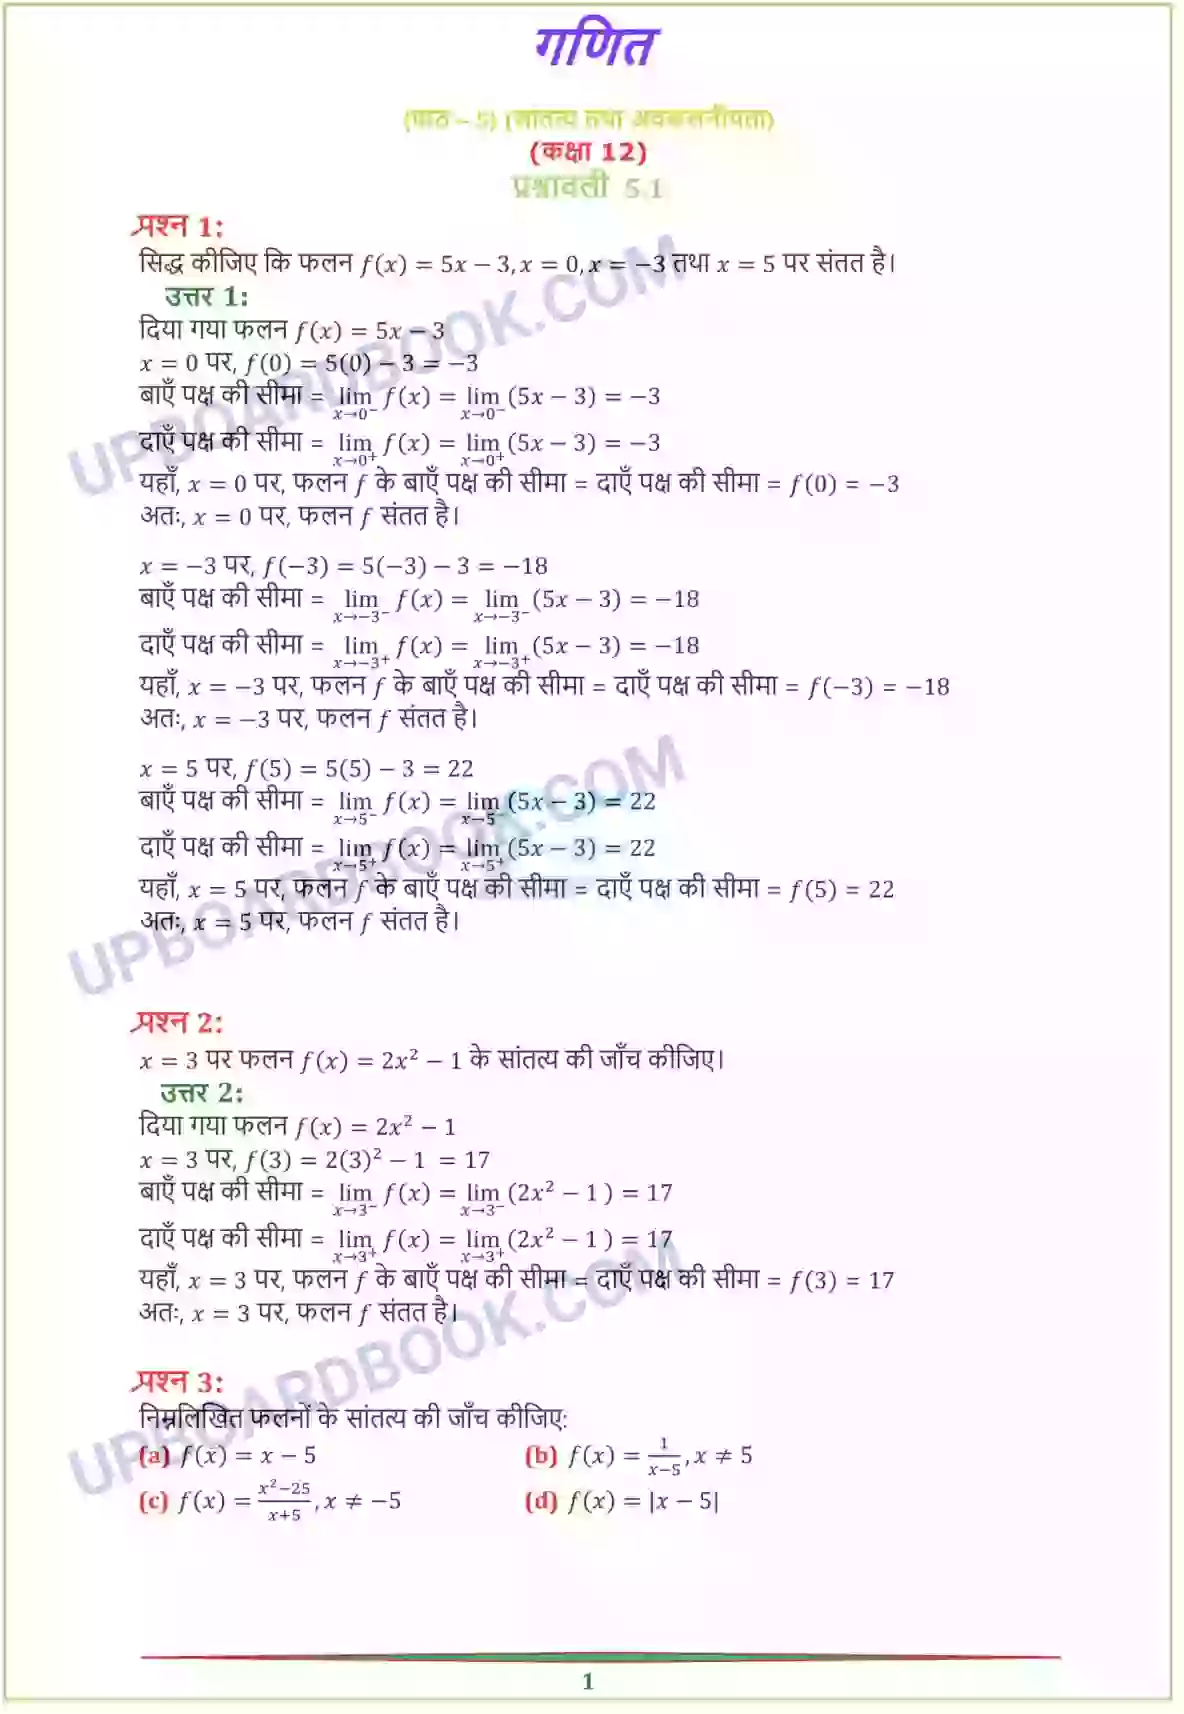 गणित
(पाठ – 5) (सांतत्य तथा अवकलनीयता)
(कक्षा 12)
प्रश्नावली 5.1
प्रश्न 1:
सिद्ध कीजिए कि फलन f(x) = 5x − 3, x = 0, x = −3 तथा x = 5 पर संतत है।
उत्तर 1:
दिया गया फलन f(x) = 5x − 3
x = 0 पर, f(0) = 5(0) − 3 = −3
बाएँ पक्ष की सीमा = lim x→0⁻ f(x) = lim x→0⁻ (5x − 3) = −3
दाएँ पक्ष की सीमा = lim x→0⁺ f(x) = lim x→0⁺ (5x − 3) = −3
यहाँ, x = 0 पर, फलन f के बाएँ पक्ष की सीमा = दाएँ पक्ष की सीमा = f(0) = −3
अतः, x = 0 पर, फलन f संतत है।
x = −3 पर, f(−3) = 5(−3) − 3 = −18
बाएँ पक्ष की सीमा = lim x→−3⁻ f(x) = lim x→−3⁻ (5x − 3) = −18
दाएँ पक्ष की सीमा = lim x→−3⁺ f(x) = lim x→−3⁺ (5x − 3) = −18
यहाँ, x = −3 पर, फलन f के बाएँ पक्ष की सीमा = दाएँ पक्ष की सीमा = f(−3) = −18
अतः, x = −3 पर, फलन f संतत है।
x = 5 पर, f(5) = 5(5) − 3 = 22
बाएँ पक्ष की सीमा = lim x→5⁻ f(x) = lim x→5⁻ (5x − 3) = 22
दाएँ पक्ष की सीमा = lim x→5⁺ f(x) = lim x→5⁺ (5x − 3) = 22
यहाँ, x = 5 पर, फलन f के बाएँ पक्ष की सीमा = दाएँ पक्ष की सीमा = f(5) = 22
अतः, x = 5 पर, फलन f संतत है।
प्रश्न 2:
x = 3 पर फलन f(x) = 2x² − 1 के सांतत्य की जाँच कीजिए।
उत्तर 2:
दिया गया फलन f(x) = 2x² − 1
x = 3 पर, f(3) = 2(3)² − 1 = 17
बाएँ पक्ष की सीमा = lim x→3⁻ f(x) = lim x→3⁻ (2x² − 1 ) = 17
दाएँ पक्ष की सीमा = lim x→3⁺ f(x) = lim x→3⁺ (2x² − 1 ) = 17
यहाँ, x = 3 पर, फलन f के बाएँ पक्ष की सीमा = दाएँ पक्ष की सीमा = f(3) = 17
अतः, x = 3 पर, फलन f संतत है।
प्रश्न 3:
निम्नलिखित फलनों के सांतत्य की जाँच कीजिए:
(a) f(x) = x − 5 (b) f(x) = 1/(x−5), x ≠ 5
(c) f(x) = (x²−25)/(x+5), x ≠ −5 (d) f(x) = |x − 5|
1
UPBOARDBOOK.COM
UPBOARDBOOK.COM
UPBOARDBOOK.COM